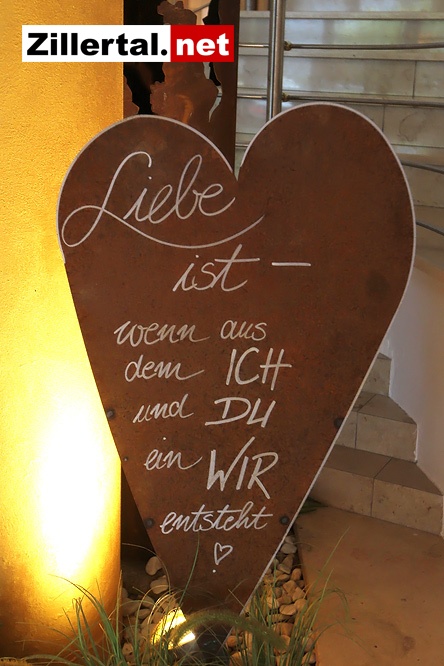 Zillertal.net
Liebe
ist –
wenn aus
dem ICH
und DU
ein WIR
entsteht
♡